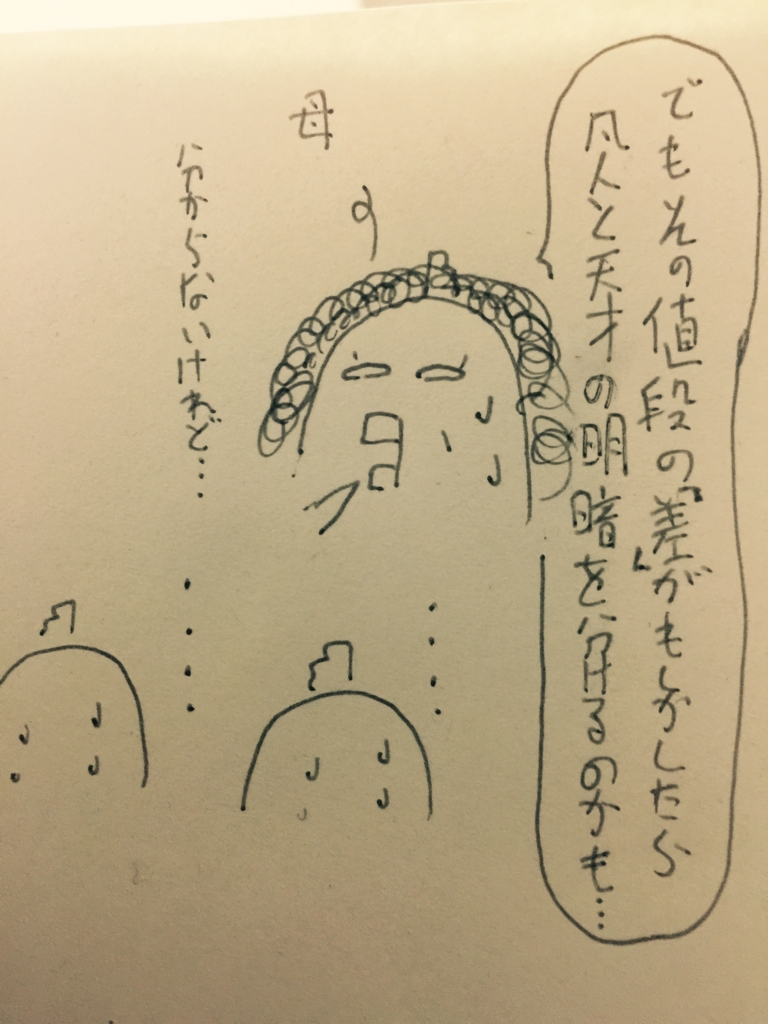 でもその値段の『差』がもしかしたら
凡人と天才の明暗を分けるのかも…
母
分からないけれど…